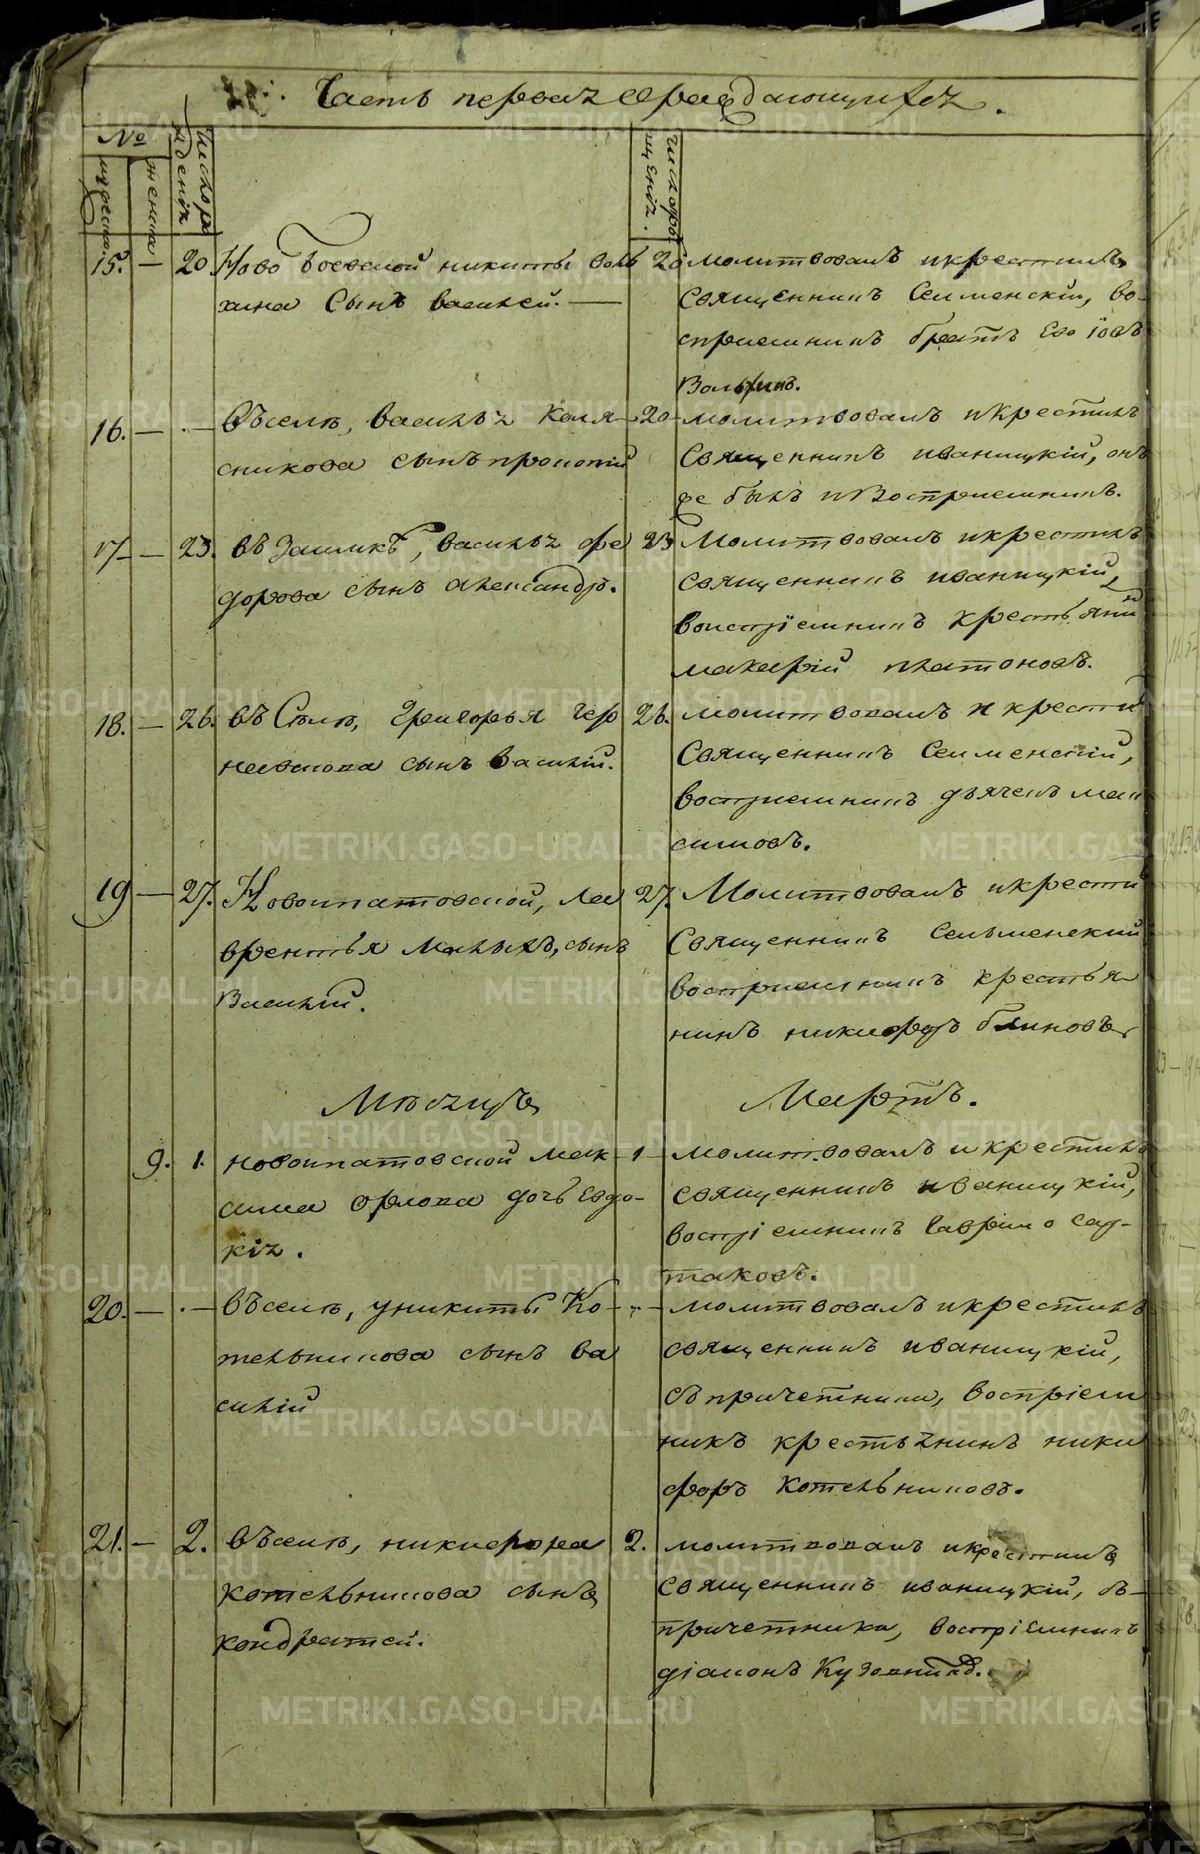 Часть первая ѡ раждающихся.
№
мужеска
женска
число рождения
число крещения.
15. — 20 Новобоевской никиты воль
хина Сынъ василей. —
20 молитвовалъ и крестилъ
Священникъ Селменскій, во-
спрiемникъ братъ Его Іовъ
Вольхинъ.
16. — — Въселѣ, василья Коля-
сникова сынъ прокопій
20 молитвовалъ и крестилъ
Священникъ иваницкій, онъ
же былъ и Воспріемникъ.
17 — 23. въ Заимкѣ, василья фе
дорова сынъ александръ.
23 Молитвовалъ и крестилъ
священникъ иваницкій,
воспріемникъ крестьянин
макарій платоновъ.
18. — 26. въ Селѣ, Григорья Чер
неевскова сынъ василій.
26. молитвовалъ и крести
Священникъ Селменскій,
воспріемникъ дьячекъ мак
симовъ.
19 — 27. Новоипатовской, Лав
врентья Малыхъ, сынъ
Василій.
27. Молитвовалъ и крести
Священникъ Сельменский
воспріемникъ крестья
нинъ никифоръ блиновъ
Мѣсяцъ Мартъ.
9. 1. новоипатовской мак
сима орлова дочь Евдо-
кія.
1 — молитвовалъ и крестилъ
священникъ иваницкій,
воспріемникъ гаврило сал-
таковъ.
20. — — Въселѣ, у никиты Ко-
тельникова сынъ ва
силій
молитвовалъ и крестилъ
священникъ иваницкій,
съ причетники, воспріем
никъ крестьянинъ ники
форъ котельниковъ.
21. — 2. въселѣ, никифора
котельникова сынъ
кондратей.
2. молитвовалъ и крестилъ
священникъ иваницкій, съ
причетники, воспріемникъ
діаконъ Кузовниковъ.
METRIKI.GASO-URAL.RU